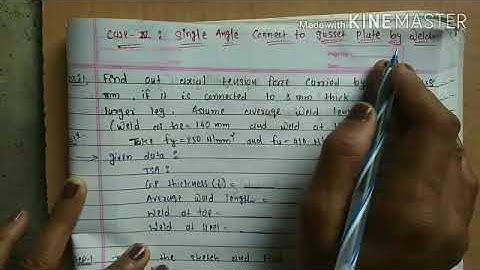 Made with KINEMASTER
Case-IV : Single Angle Connect to gusset Plate by weld
Find out axial tension force carried by
mm, if it is connected to 8 mm thick
larger leg. Assume average weld
(weld at toe = 140 mm and weld at
Take fy = 250 N/mm² and fu = 410 N
given data :
ISA :
G.P thickness (t) =
Average weld length =
weld at toe =
weld at heel =
the sketch and Find